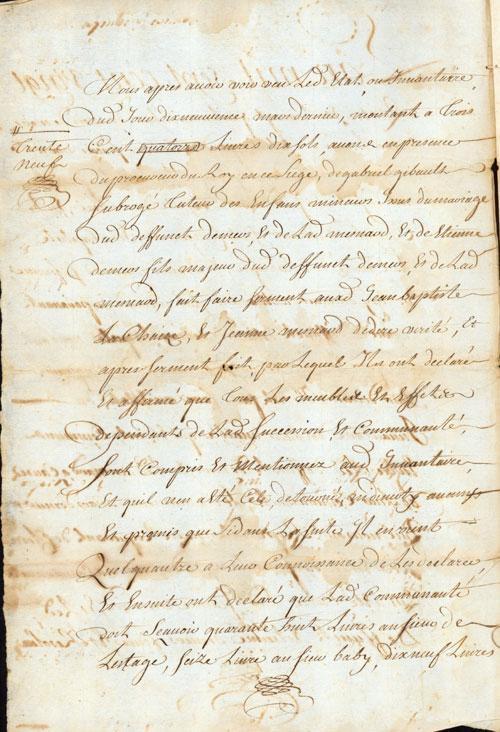 Nous apres avoir veu Led Etat, ou Inuantaire
dud Jour dixneuuieme mars dernier, montant a trois
Cent quatorze Livres dix sols auons en presence
trente
neuf
du procureur du Roy en ce siege, de gabriel gibault
subrogé tuteur des Enfans mineurs Issus du mariage
dud deffunct demers, Et de Lad menard, Et de Etienne
demers fils majeur dud deffunct demers, Et de Lad
menard, fait faire serment aud Jean baptiste
La Chaine, Et Jeanne menard de dire verité, Et
apres serment fait par Lequel Ils ont declaré
Et affirmé que tous Les meubles Et Effets
Dependants de Lad Succession Et Communauté,
sont Compris Et Mentionnez aud Inuantaire,
Et quil nen a Eté Celé, detourné, ny diuerty aucuns
Et promis que si dans La suite Il en vient
Quelquautre a Leur Connoissance de Les declarer,
Et Ensuite ont declaré que Lad Communauté
doit Scauoir quarante huit Livres au sieur de
Lestage, seize Livre au sieur baby, dixneuf Livres